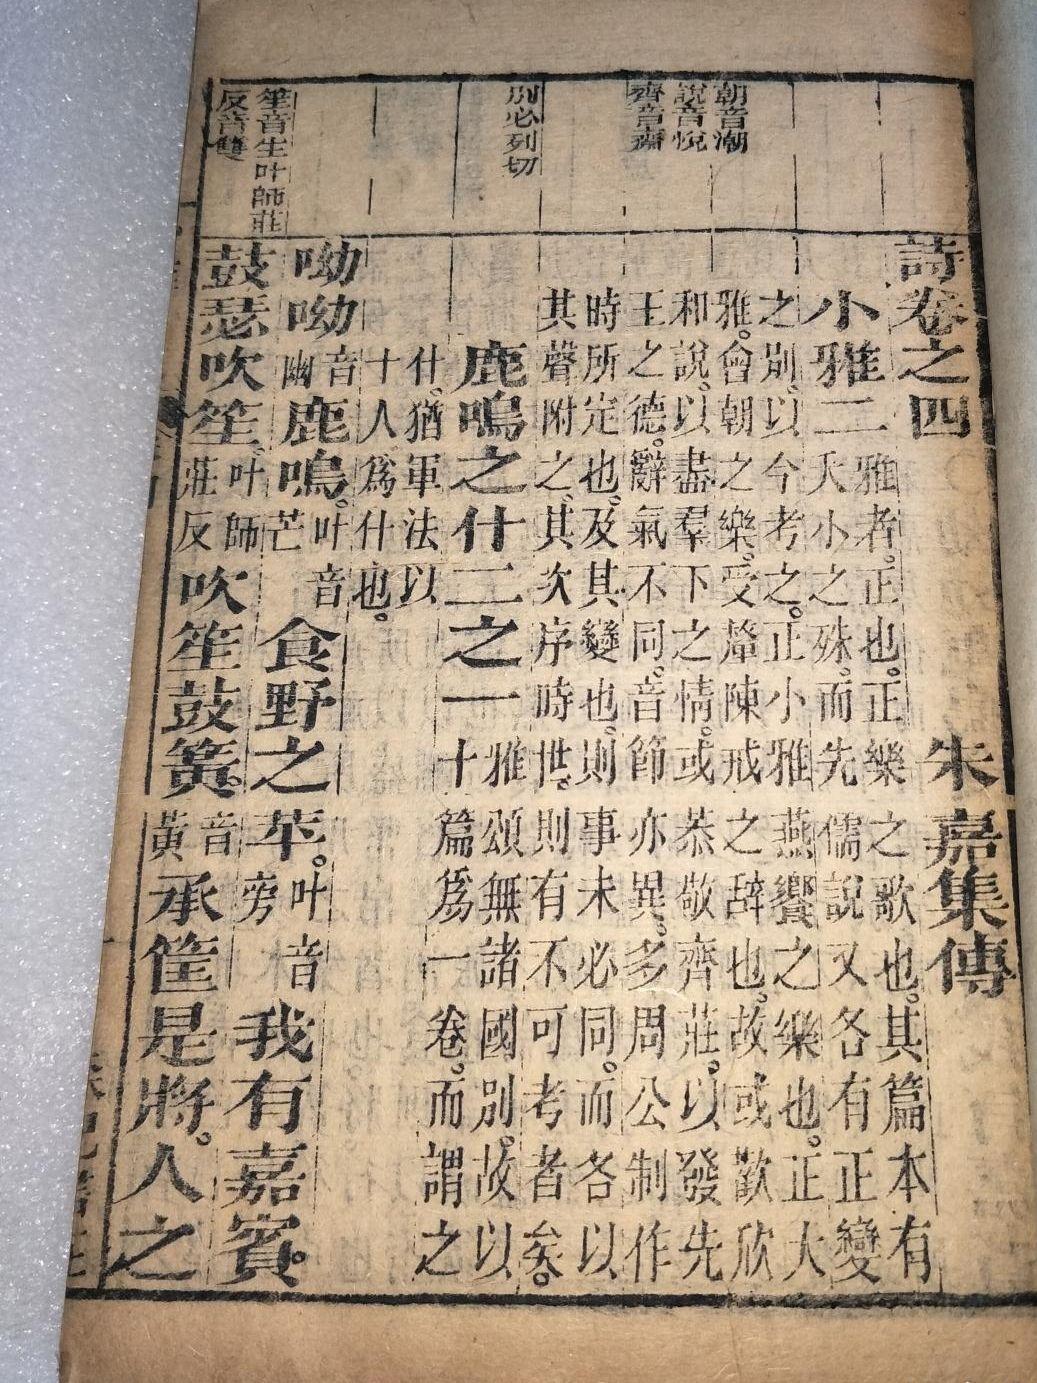 朝音潮
說音悅
齊音齋
別必列切
笙音生叶師莊
反音雙
詩卷之四 朱嘉集傳
小雅二 雅者。正也。正樂之歌也。其篇本有
大小之殊。而先儒說又各有正變
之別。以今考之。正小雅燕饗之樂也。正大
雅。會朝之樂。受釐陳戒之辞也。故或歡欣
和說。以盡羣下之情。或恭敬齊莊。以發先
王之德。辭氣不同。音節亦異。多周公制作
時所定也。及其變也。則事未必同。而各以
其聲附之。其次序時世。則有不可考者矣。
鹿鳴之什二之一 雅頌無諸國別。故以
十篇爲一卷。而謂之
什。猶軍法以
十人爲什也。
呦呦音幽鹿鳴。叶音芒食野之苹。叶音旁我有嘉賓。
鼓瑟吹笙。叶師莊反吹笙鼓簧。音黃承筐是將。人之